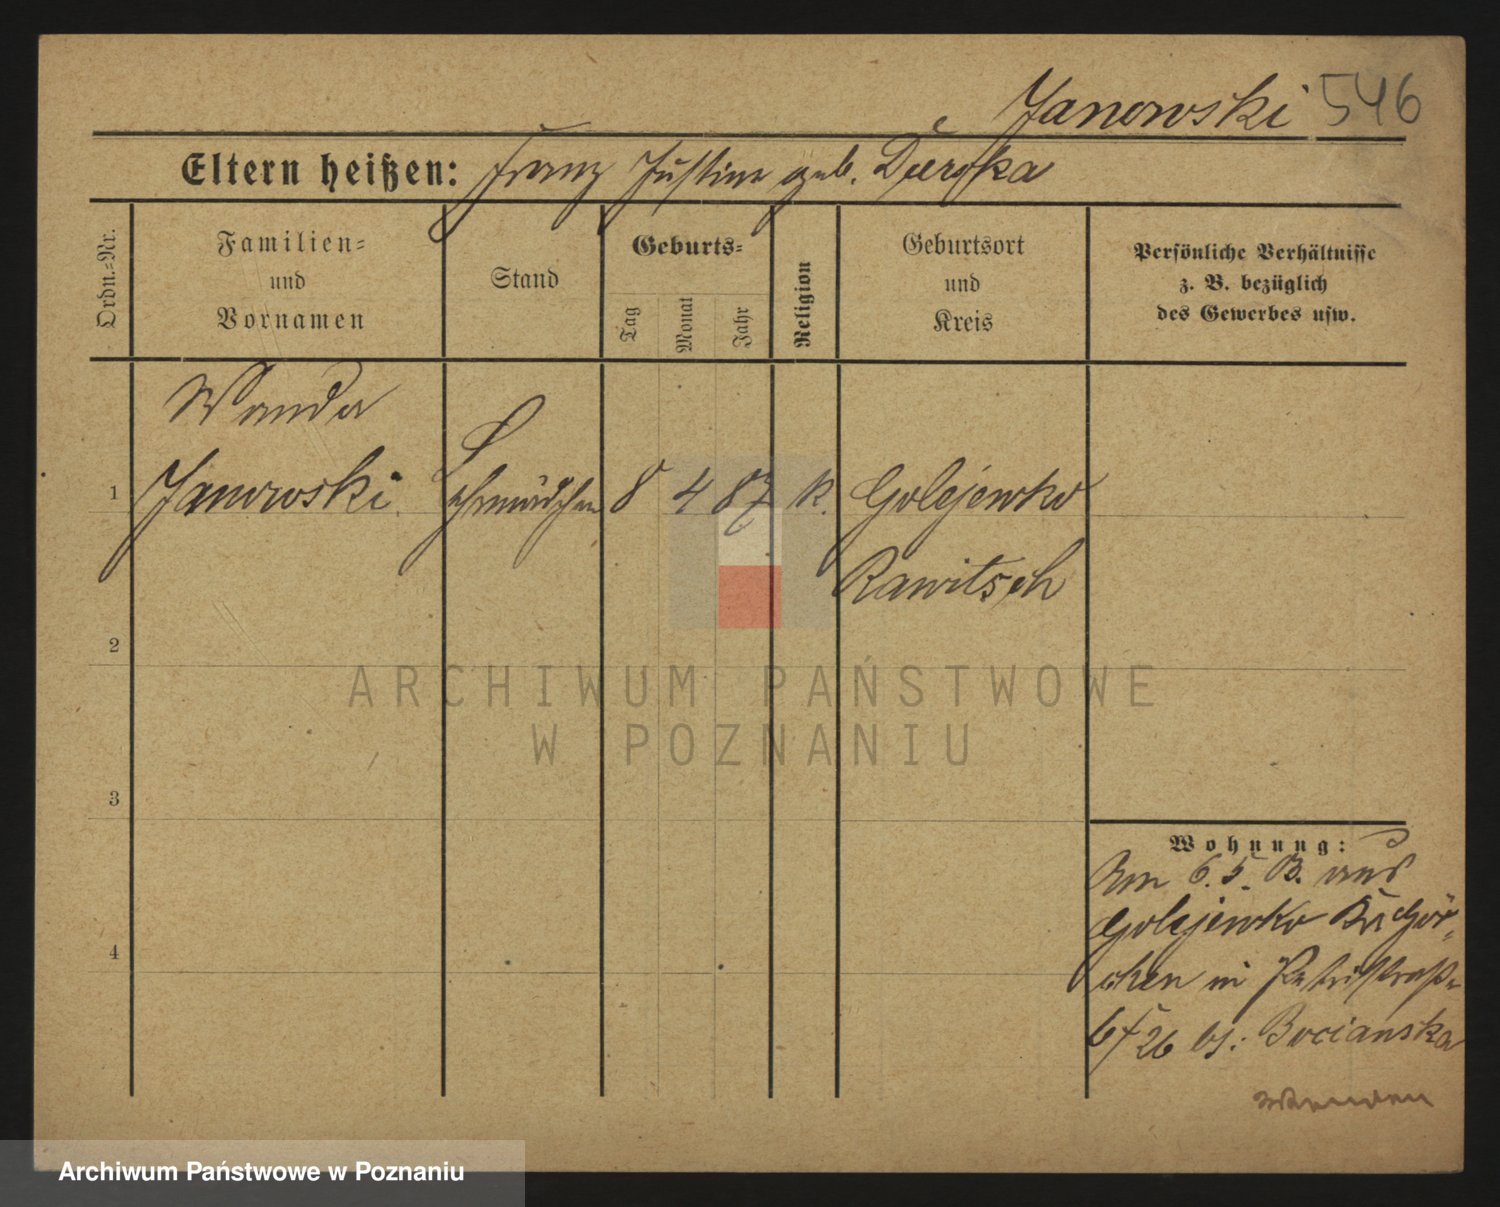 Janowski 546
Eltern heißen: Franz Justine geb. Durska
Ordn.=Nr.
Familien=
und
Vornamen
Stand
Geburts=
Tag
Monat
Jahr
Religion
Geburtsort
und
Kreis
Persönliche Verhältnisse
z. B. bezüglich
des Gewerbes usw.
Wanda
1 Janowski Lehrmädchen 8 4 87 k. Golejewko
Rawitsch
2
ARCHIWUM PAŃSTWOWE
W POZNANIU
3
Wohnung:
Am 6. 5. 03. aus
Golejewko Kr Gör=
chen in Petristraße
6 26 bs: Bocianska
4
Wenden
Archiwum Państwowe w Poznaniu